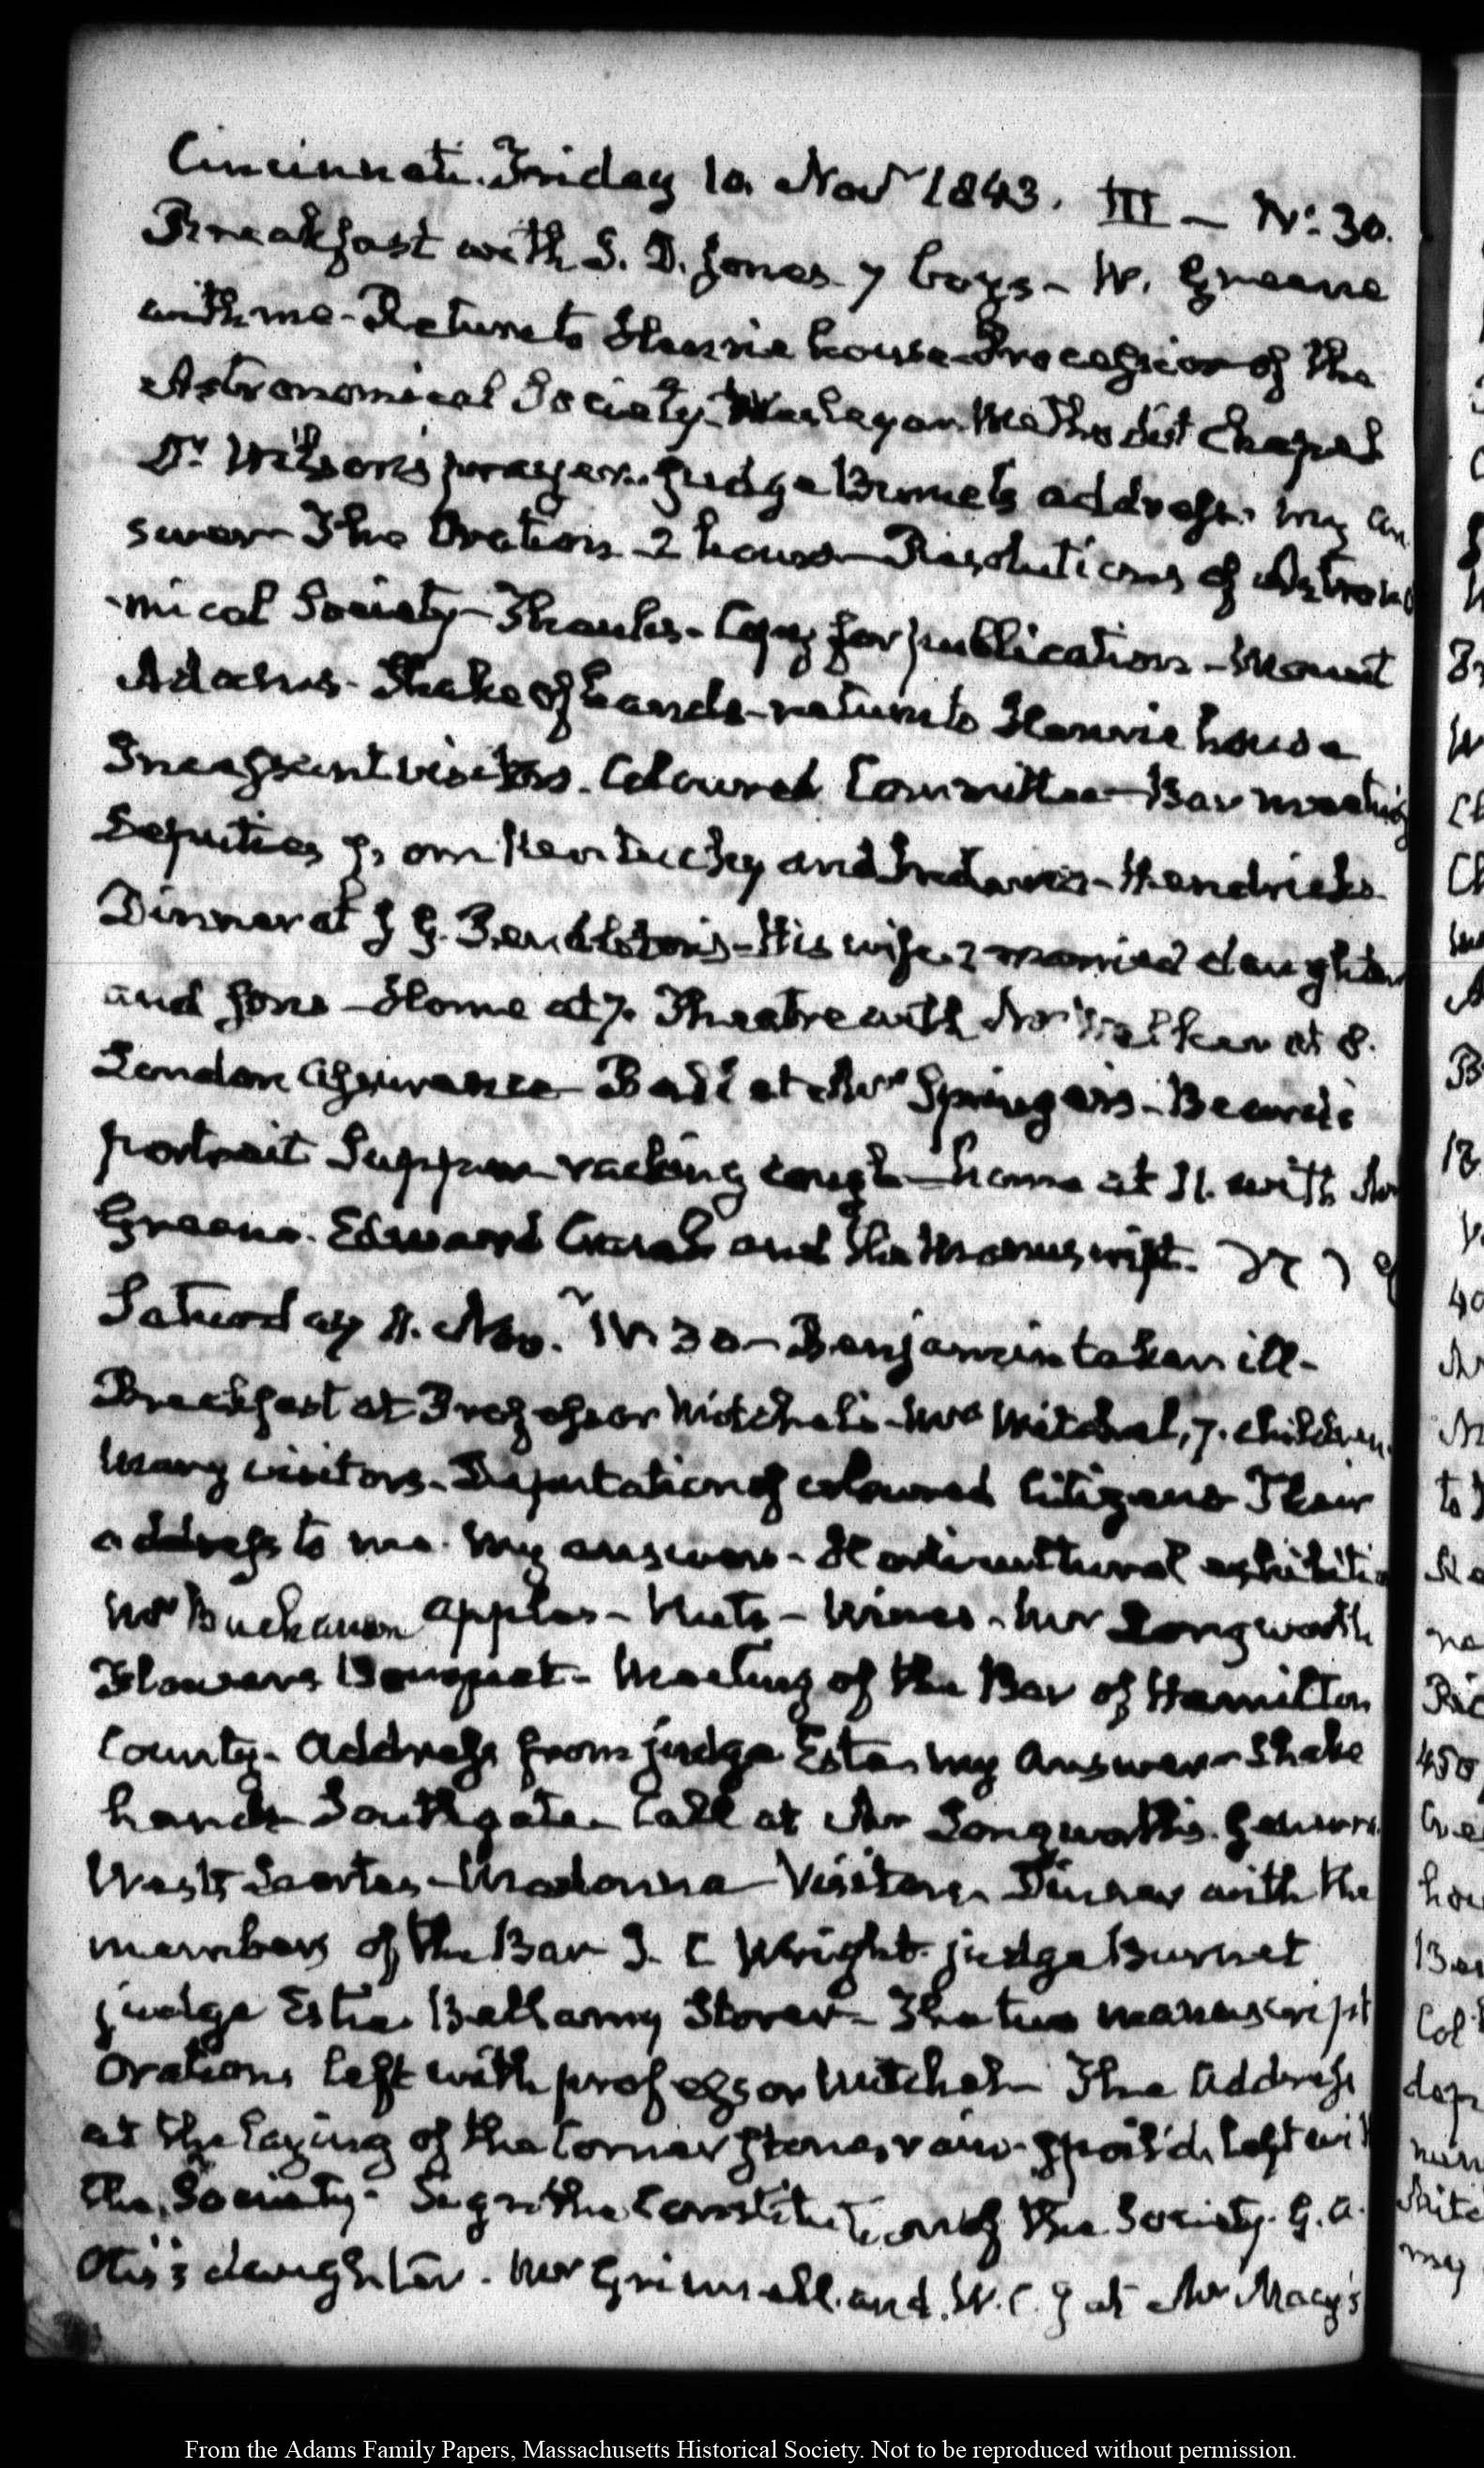 Cincinnati. Friday 10. Novr 1843. III — No: 30.
Breakfast with S. D. Jones. 7 boys — W. Greene
with me — Return to Henrie house — Procession of the
Astronomical Society — Wesleyan Methodist Chapel
Dr. Wilson's prayer. Judge Burnet's address. my an
swer — The Oration — 2 hours — Resolutions of Astrono
mical Society — Thanks — Copy for publication — Mount
Adams — Shake of hands — return to Henrie house
Incessant visitors. Coloured Committee — Bar meeting
Deputies from Kentucky and Indiana — Hendricks
Dinner at Pendleton's — His wife 2 married daughters
and sons — Home at 7. Theatre with Mr Walker at 8.
London Assurance — Ball at Mrs Springer's — Beard's
portrait Supper — racking cough — home at 11. with Mr
Greene. Edward and the Manuscript.
Saturday 11. Nov. IV. 30 — Benjamin taken ill —
Breakfast at Professor Mitchel's — Mrs Mitchel, 7. children.
Many visitors. Deputation of coloured Citizens Their
address to me. My answer — Horticultural exhibitio
Mr Buchanan apples — Nuts — Wines — Mr Longworth
Flowers Bouquet — Meeting of the Bar of Hamilton
County — Address from judge Este — my answer — Shake
hands — Southgate — Call at Mr Longworth's.
West's — Madonna — Visitors — Dinner with the
members of the Bar J. C Wright. judge Burnet
judge Este. Bellamy Storer — The two manuscript
Orations left with professor Mitchel — The Address
at the laying of the Corner stone, rain-spoil'd, left wi
the Society. Sign the Constitution of the Society. G. A.
Otis's daughter. Mr Grinnell. and W. C. J at Mr Macy's
From the Adams Family Papers, Massachusetts Historical Society. Not to be reproduced without permission.